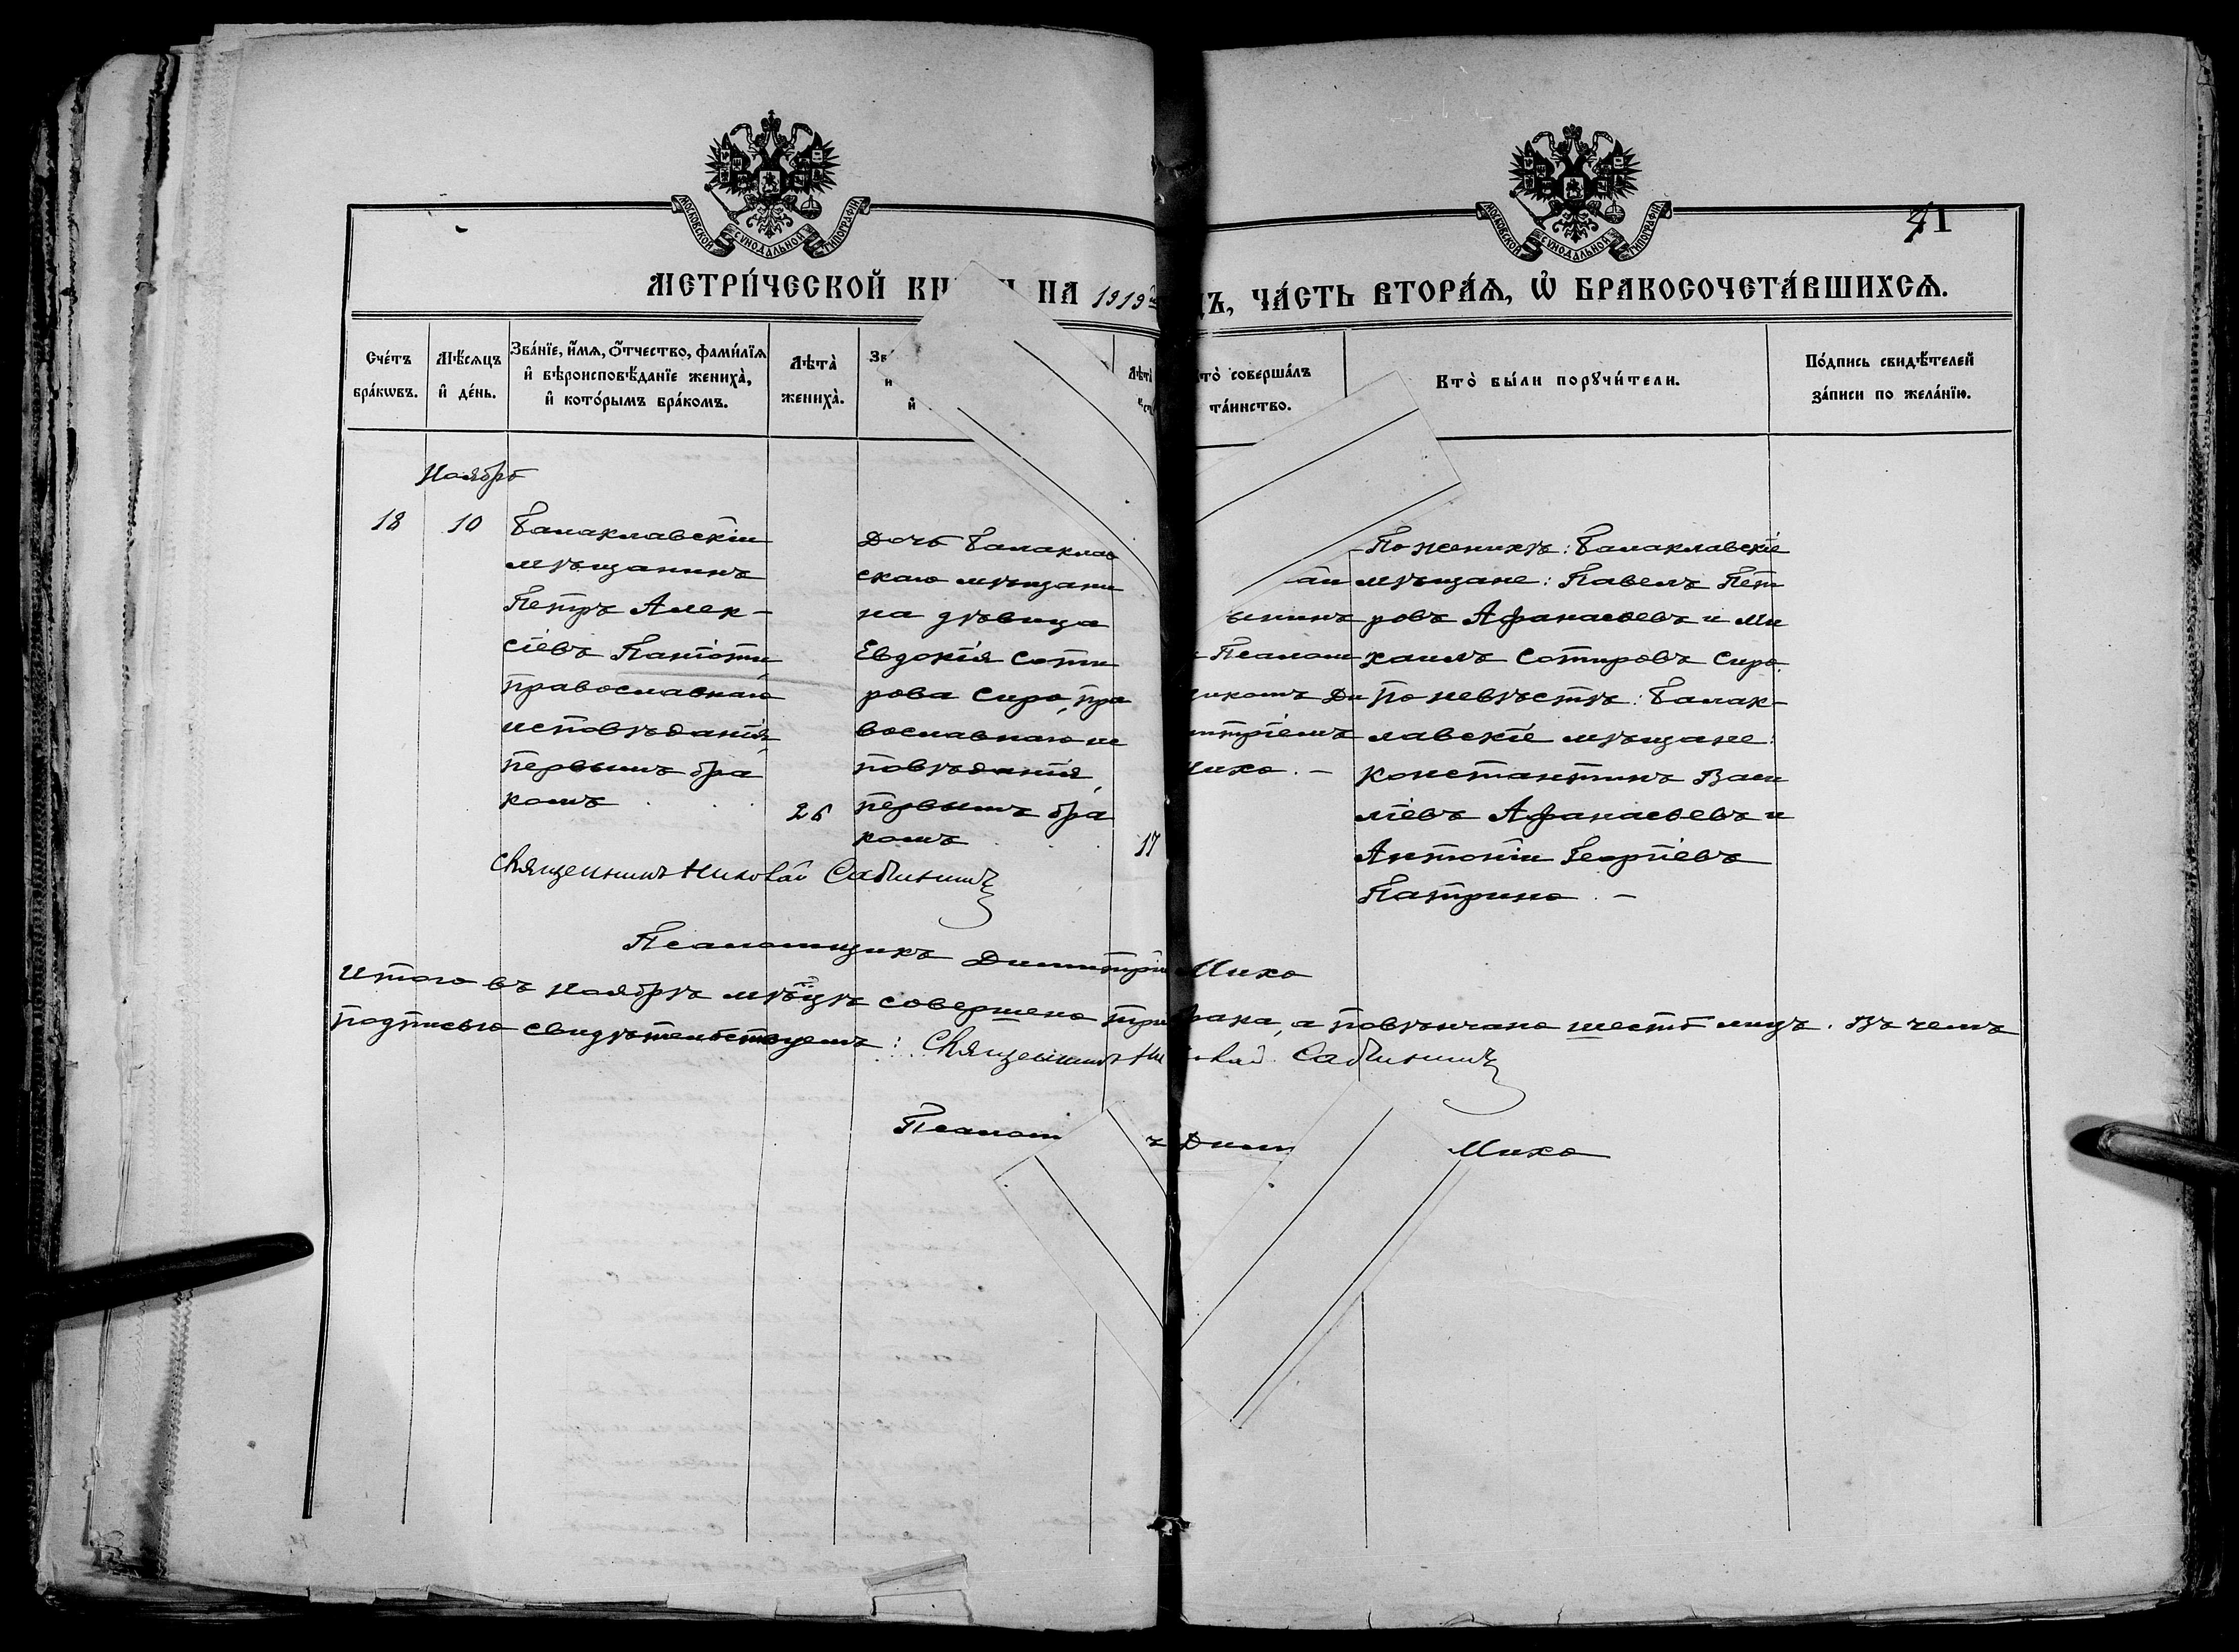 МОСКОВСКОЙ СУНОДАЛЬНОЙ ТИПОГРАФІИ
МОСКОВСКОЙ СУНОДАЛЬНОЙ ТИПОГРАФІИ
71
МЕТРИ́ЧЕСКОЙ НА 1919
ЧА́СТЬ ВТОРА́Ѧ, Ѡ҆ БРАКОСОЧЕТА́ВШИХСѦ.
Сче́тъ
бра́кωвъ.
Мѣ́сѧцъ
и҆ де́нь.
Зва́нїе, и҆́мѧ, о҆́тчество, фами́лїѧ
и҆ вѣроисповѣ́данїе жениха̀,
и҆ кото́рымъ бра́комъ.
Лѣта̀
жениха̀.
Лѣта̀
Кто̀ соверша́лъ
та́инство.
Кто̀ бы́ли порꙋчи́тели.
По́дпись свидѣ́телей
за́писи по жела́нїю.
Ноябрь
18
10
Балаклавскій
мѣщанинъ
Петръ Алек-
сіевъ Паніоти
православнаго
исповѣданія,
первымъ бра
комъ
26
Дочь Балаклав
скаго мѣщани
на дѣвица
Евдокія Соти
рова Сиро, пра
вославнаго ис
повѣданія,
первымъ бра
комъ
17
Псалом
щикомъ Ди
митріемъ
Михо. –
По женихѣ: Балаклавскіе
мѣщане: Павелъ Пет
ровъ Афанасьевъ и Ми
хаилъ Сотировъ Сиро.
По невѣстѣ: Балак-
лавскіе мѣщане:
Константинъ Васи
ліевъ Афанасьевъ и
Антоній Георгіевъ
Патрино. –
Священникъ Николай Сабининъ
Псаломщикъ Димитрій Михо
Итого въ Ноябрѣ мѣсцѣ совершено три брака, а повѣнчано шесть лицъ. Въ чемъ
подписью свидѣтельствуемъ: Священникъ Николай Сабининъ
Псалом ъ Дими Михо